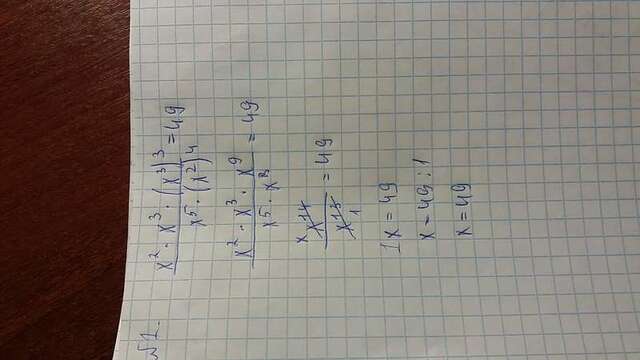 №1.
x² · x³ · (x³)³ / x⁵ · (x²)⁴ = 49
x² · x³ · x⁹ / x⁵ · x⁸ = 49
x x¹⁴ / x¹³ 1 = 49
1x = 49
x = 49 : 1
x = 49